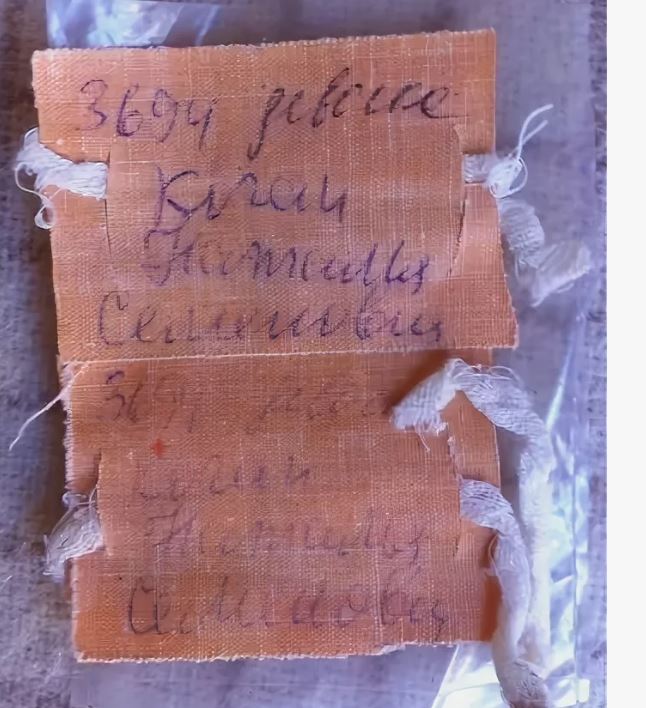 3694 девочка
Коган
Натальи
Семеновны
3694
Коган
Натальи
Семеновны